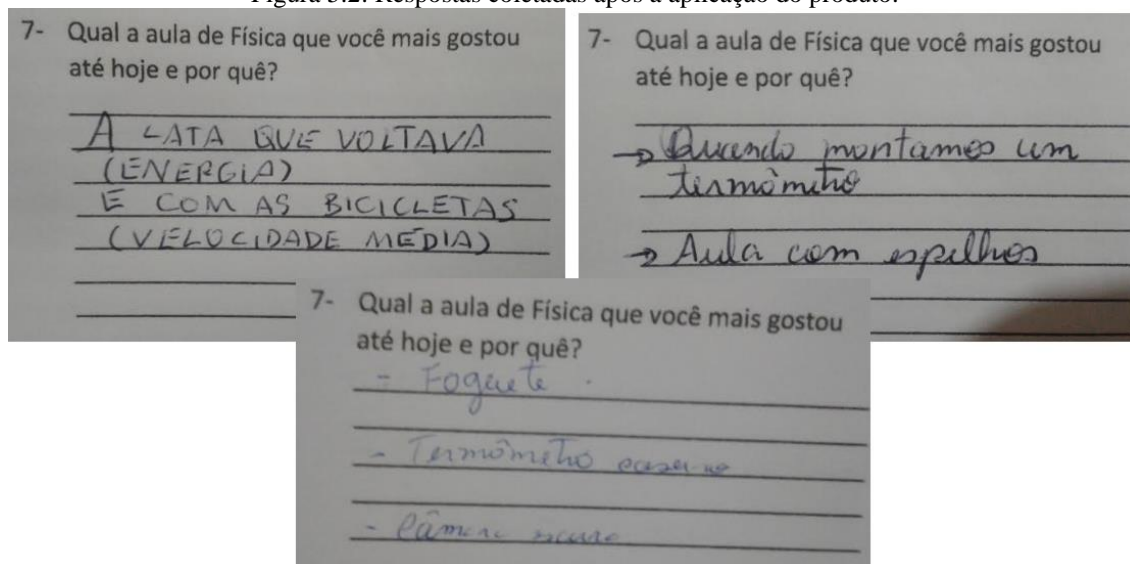 Figura 5.2: Respostas coletadas após a aplicação do produto.
7- Qual a aula de Física que você mais gostou
até hoje e por quê?
A LATA QUE VOLTAVA
(ENERGIA)
E COM AS BICICLETAS
(VELOCIDADE MÉDIA)
7- Qual a aula de Física que você mais gostou
até hoje e por quê?
→ Quando montamos um
termômetro
→ Aula com espelhos
7- Qual a aula de Física que você mais gostou
até hoje e por quê?
- Foguete.
- Termômetro caseiro
- Câmara escura